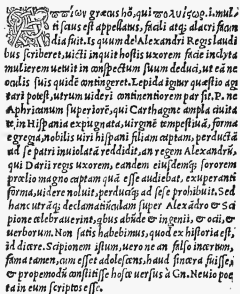 Αππίων græcus hō, qui πολυίσωρ. I. mul/
tiscius est appellatus, facili atq; alacri facun
dia fuit. Is quum de Alexandri Regis laudi
bus scriberet, uicti inquit hostis uxorem facie inclyta
mulierem uetuit in conspectum suum deduci, ut eā ne
oculis suis quidē contingeret. Lepida igitur quæstio ag
tari potest, utrum uideri continentiorem par sit. P. ne
Aphricanum superiorē, qui Carthagine ampla ciuita
te, in Hispania expugnata, uirginē tempestiuā, forma
egregia, nobilis uiri hispani filiam captam, perductā
ad se patri inuiolatā reddidit, an regem Alexandrū,
qui Darii regis uxorem, eandem eiusdemq; sororem
prælio magno captam quā esse audiebat, exuperanti
forma, uidere noluit, perducāq; ad sese prohibuit. Sed
hanc utrāq; declamatiūculam super Alexādro & Sci
pione celebrauerint, qbus abūde & ingenii, & ocii, &
uerborum. Non satis habebimus, quod ex historia est,
id dicere. Scipionem istum, uero ne an falso incertum,
fama tamen, cum esset adolescens, haud sincera fuisse,
& propemodū constitisse hosce uersus à Cn. Neuio poe
ta in eum scriptos esse.